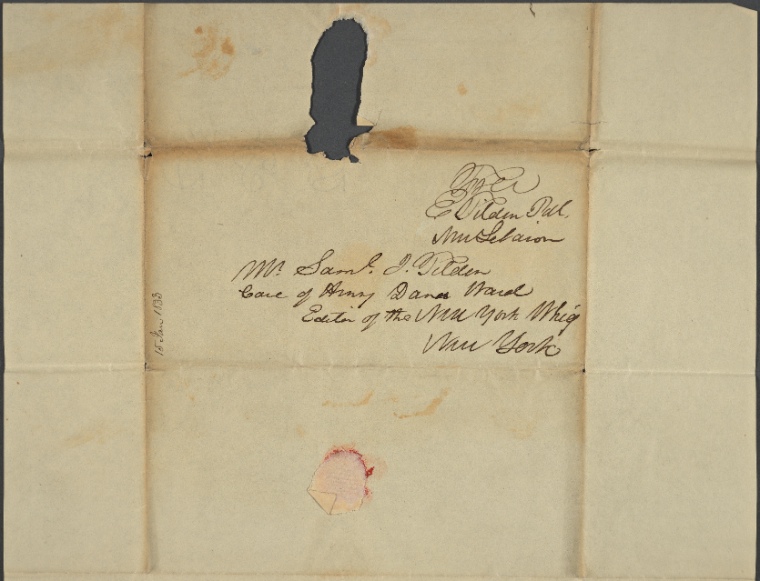 Free
E Tilden P.M.
New Lebanon
Mr. Saml. J. Tilden
Care of Henry Dana Ward
Editor of the New York Whig
New York
15 Jan 1833